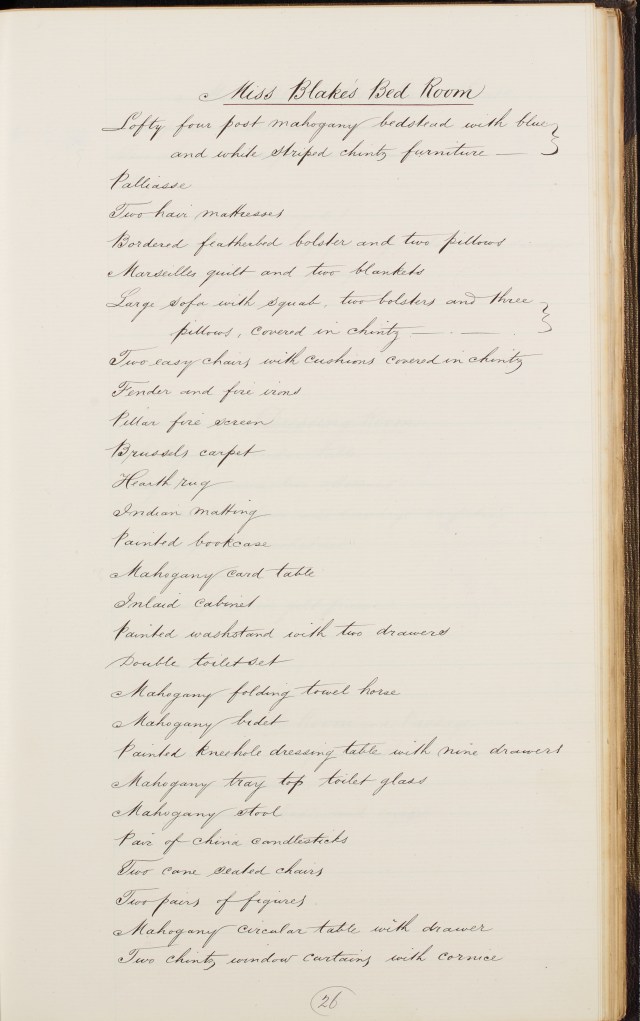 Miss Blake's Bed Room
Lofty four post mahogany bedstead with blue
and white striped chintz furniture —
Palliasse
Two hair mattresses
Bordered featherbed bolster and two pillows
Marseilles quilt and two blankets
Large sofa with squab, two bolsters and three
pillows, covered in chintz — . — .
Two easy chairs with cushions covered in chintz
Fender and fire irons
Pillar fire screen
Brussels carpet
Hearth rug
Indian matting
Painted bookcase
Mahogany card table
Inlaid cabinet
Painted washstand with two drawers
Double toilet set
Mahogany folding towel horse
Mahogany bidet
Painted kneehole dressing table with nine drawers
Mahogany tray top toilet glass
Mahogany stool
Pair of china candlesticks
Two cane seated chairs
Two pairs of figures
Mahogany circular table with drawer
Two chintz window curtains with cornice
26